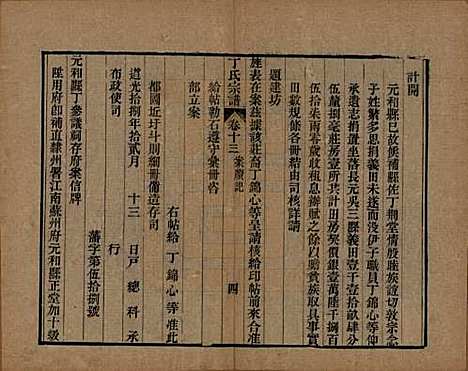 計開
元和縣已故候補縣佐丁朝堂情殷睦族誼切敦宗念
子姓繁多思捐義田未遂而沒伊子職員丁錦心等仰
承遺志捐置坐落長元吳三縣義田壹千壹拾畝肆分
伍釐捌毫莊房壹所共計田房契價銀壹萬
伍拾柒兩零歲收租息辦賦之餘以贍貧族捐取具事實
田數規條各冊結由司核詳請
題建坊
旌表在案茲據該莊裔丁錦心等呈請核給印帖前來合准
丁氏宗譜
卷十三
案牘記
四
給帖勒石遵守彙冊咨
部立案
都圖近圩斗則細冊備造存司
右帖給丁錦心等准此
道光拾捌年拾貳月十三日戶總科承
布政使司
行
藩字第伍拾捌號
元和縣丁參議祠存府案信牌
陞用府即補直隸州署江南蘇州府元和縣正堂加十級